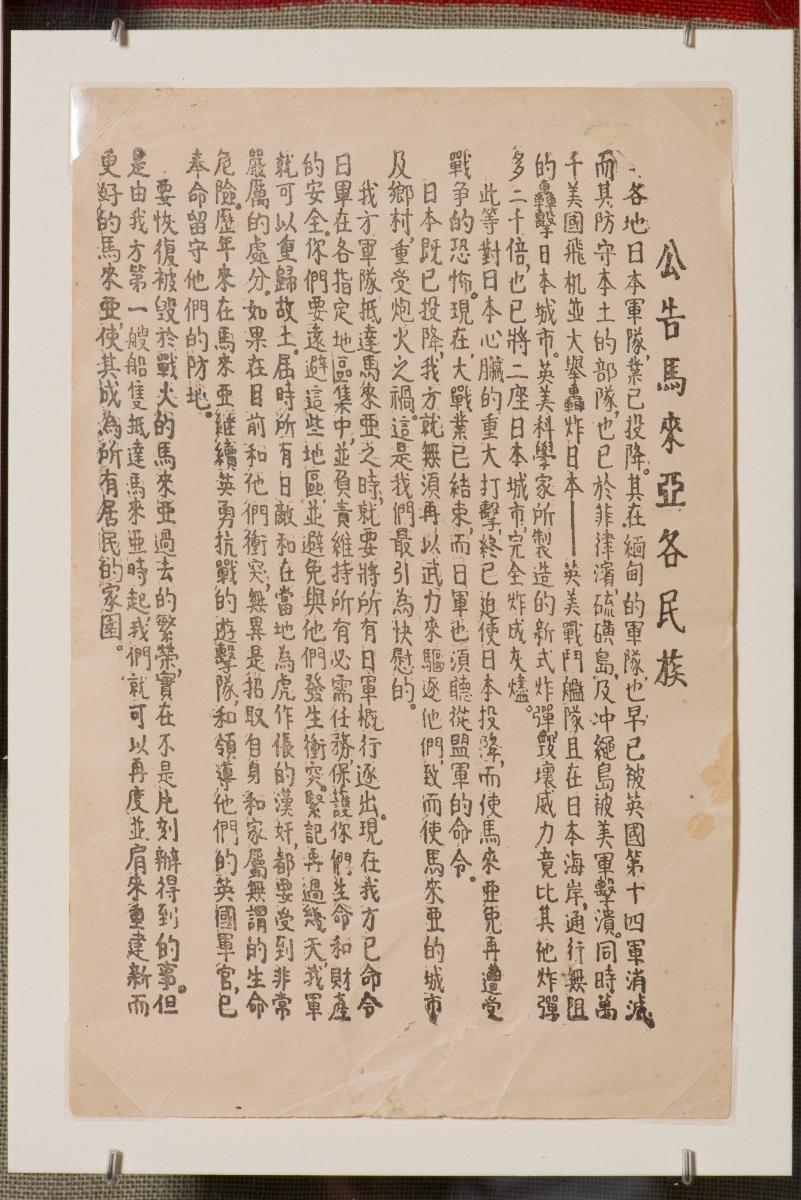 公告馬來亞各民族
各地日本軍隊,業已投降。其在緬甸的軍隊,也早已被英國第十四軍消滅,
而其防守本土的部隊,也已於菲律濱,硫磺島,及冲繩島被美軍擊潰。同時萬
千美國飛机並大舉轟炸日本——英美戰鬥艦隊且在日本海岸,通行無阻
的轟擊日本城市。英美科學家所製造的新式炸彈,毀壞威力竟比其他炸彈
多二千倍,也已將二座日本城市,完全炸成灰燼。
此等對日本心臟的重大打擊,終已迫使日本投降,而使馬來亞免再遭受
戰争的恐怖。現在,大戰業已結束,而日軍也須聽從盟軍的命令。
日本既已投降,我方就無須再以武力來驅逐他們,致而使馬來亞的城市
及鄉村,重受炮火之禍。這是我們最引為快慰的。
我方軍隊抵達馬來亞之時,就要將所有日軍概行逐出。現在我方已命令
日軍在各指定地區集中,並負責維持所有必需任務,保護你們生命和財產
的安全。你們要遠避這些地區,並避免與他們發生衝突。緊記再過幾天,我軍
就可以重歸故土。屆時所有日敵和在當地為虎作倀的漢奸,都要受到非常
嚴厲的處分。如果在目前和他們衝突,無異是招取自身和家屬無謂的生命
危險。歷年來在馬來亞継續英勇抗戰的遊擊隊,和領導他們的英國軍官,已
奉命留守他們的防地。
要恢復被毀於戰火的馬來亞過去的繁榮,實在不是片刻辦得到的事。但
是由我方第一艘船隻抵達馬來亞時起,我們就可以再度並肩來重建新而
更好的馬來亞,使其成為所有居民的家園。